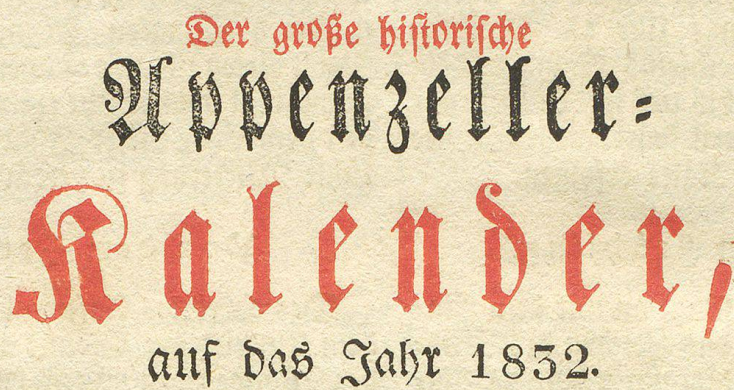 Der große historische
Appenzeller=
Kalender,
auf das Jahr 1832.